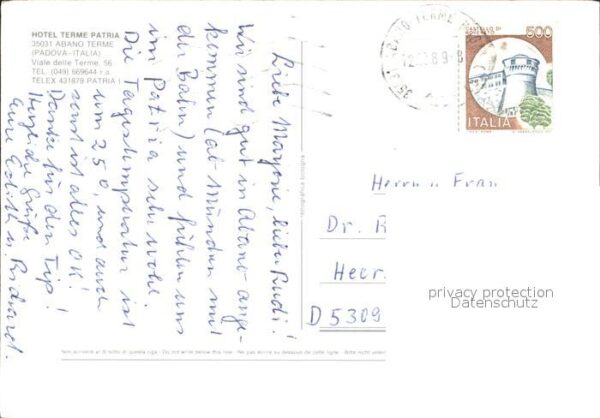 HOTEL TERME PATRIA
35031 ABANO TERME
(PADOVA-ITALIA)
Viale delle Terme, 56
TEL. (049) 669644 r.a.
TELEX 431879 PATRIA I
Liebe Marjorie, lieber Rudi!
Wir sind gut in Abano ange-
kommen (ab München mit
der Bahn) und fühlen uns
im Patria sehr wohl.
Die Tagestemperatur ist
um 25°, und auch
sonst ist alles OK!
Danke für den Tip!
Herzliche Grüße
Eure Edith u. Richard.
ABANO TERME
500
CASTELLO DI
ROVERETO
ITALIA
Herrn u Frau
Dr. R
Heer
D 5309
privacy protection
Datenschutz
Non scrivere al di sotto di questa riga - Do not write below this line - Ne pas écrire au dessous de cette ligne - Bitte nicht unter